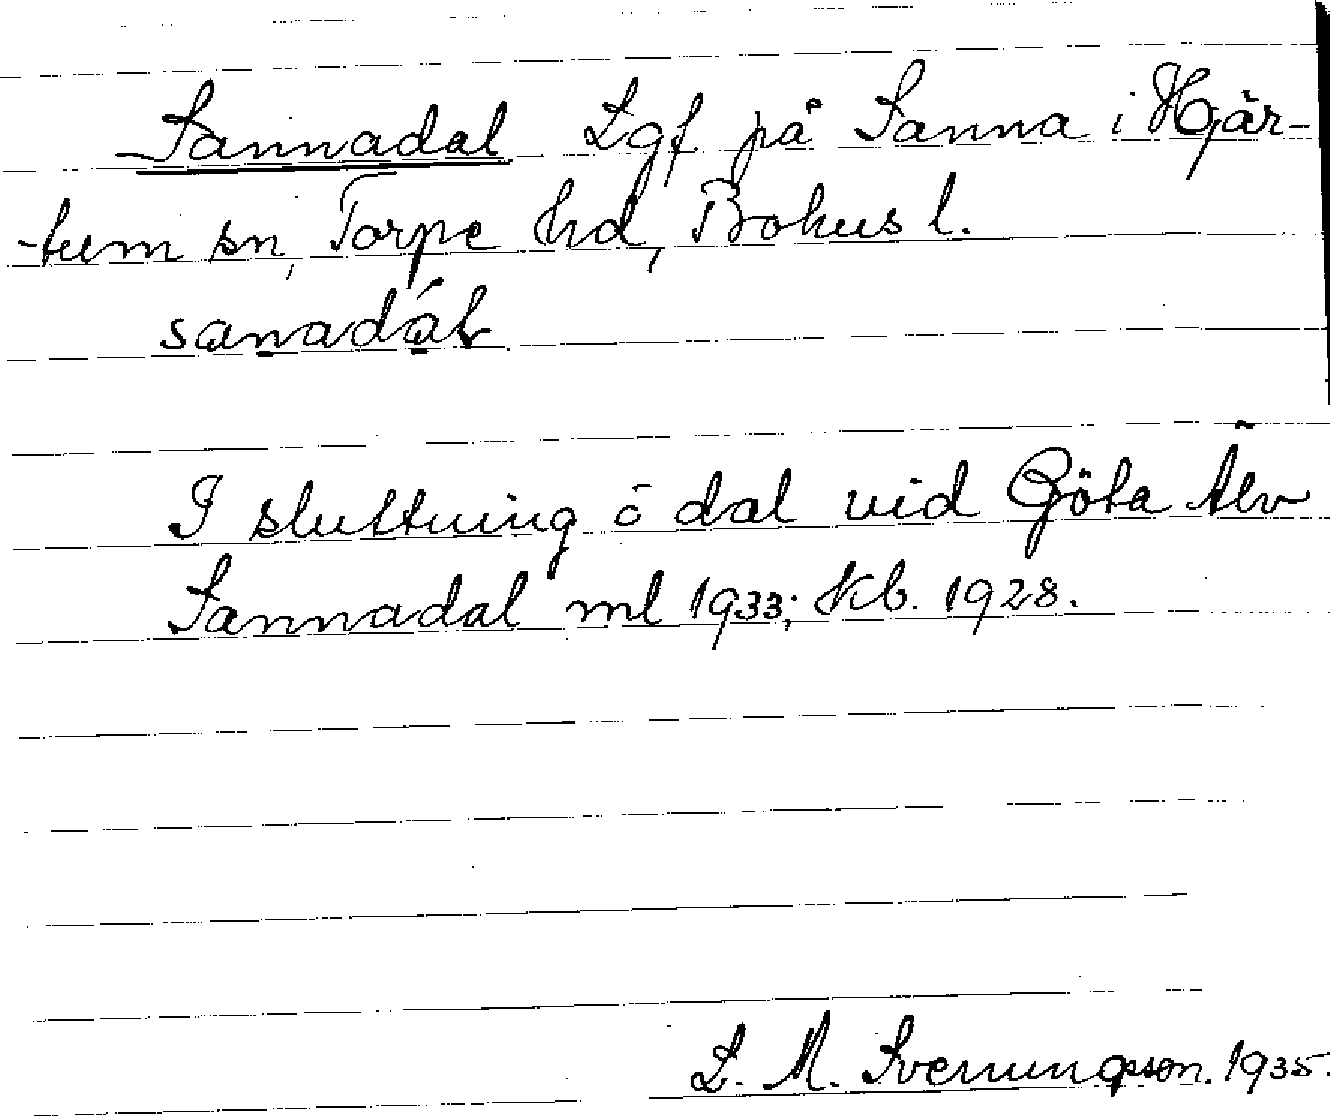 Sannadal Lgf på Sanna i Hjär-
tum sn, Torpe hd, Bohus l.
sanadál
I sluttning ö dal vid Göta Älv
Sannadal ml 1933; kb. 1928.
L. M. Svenungsson. 1935.